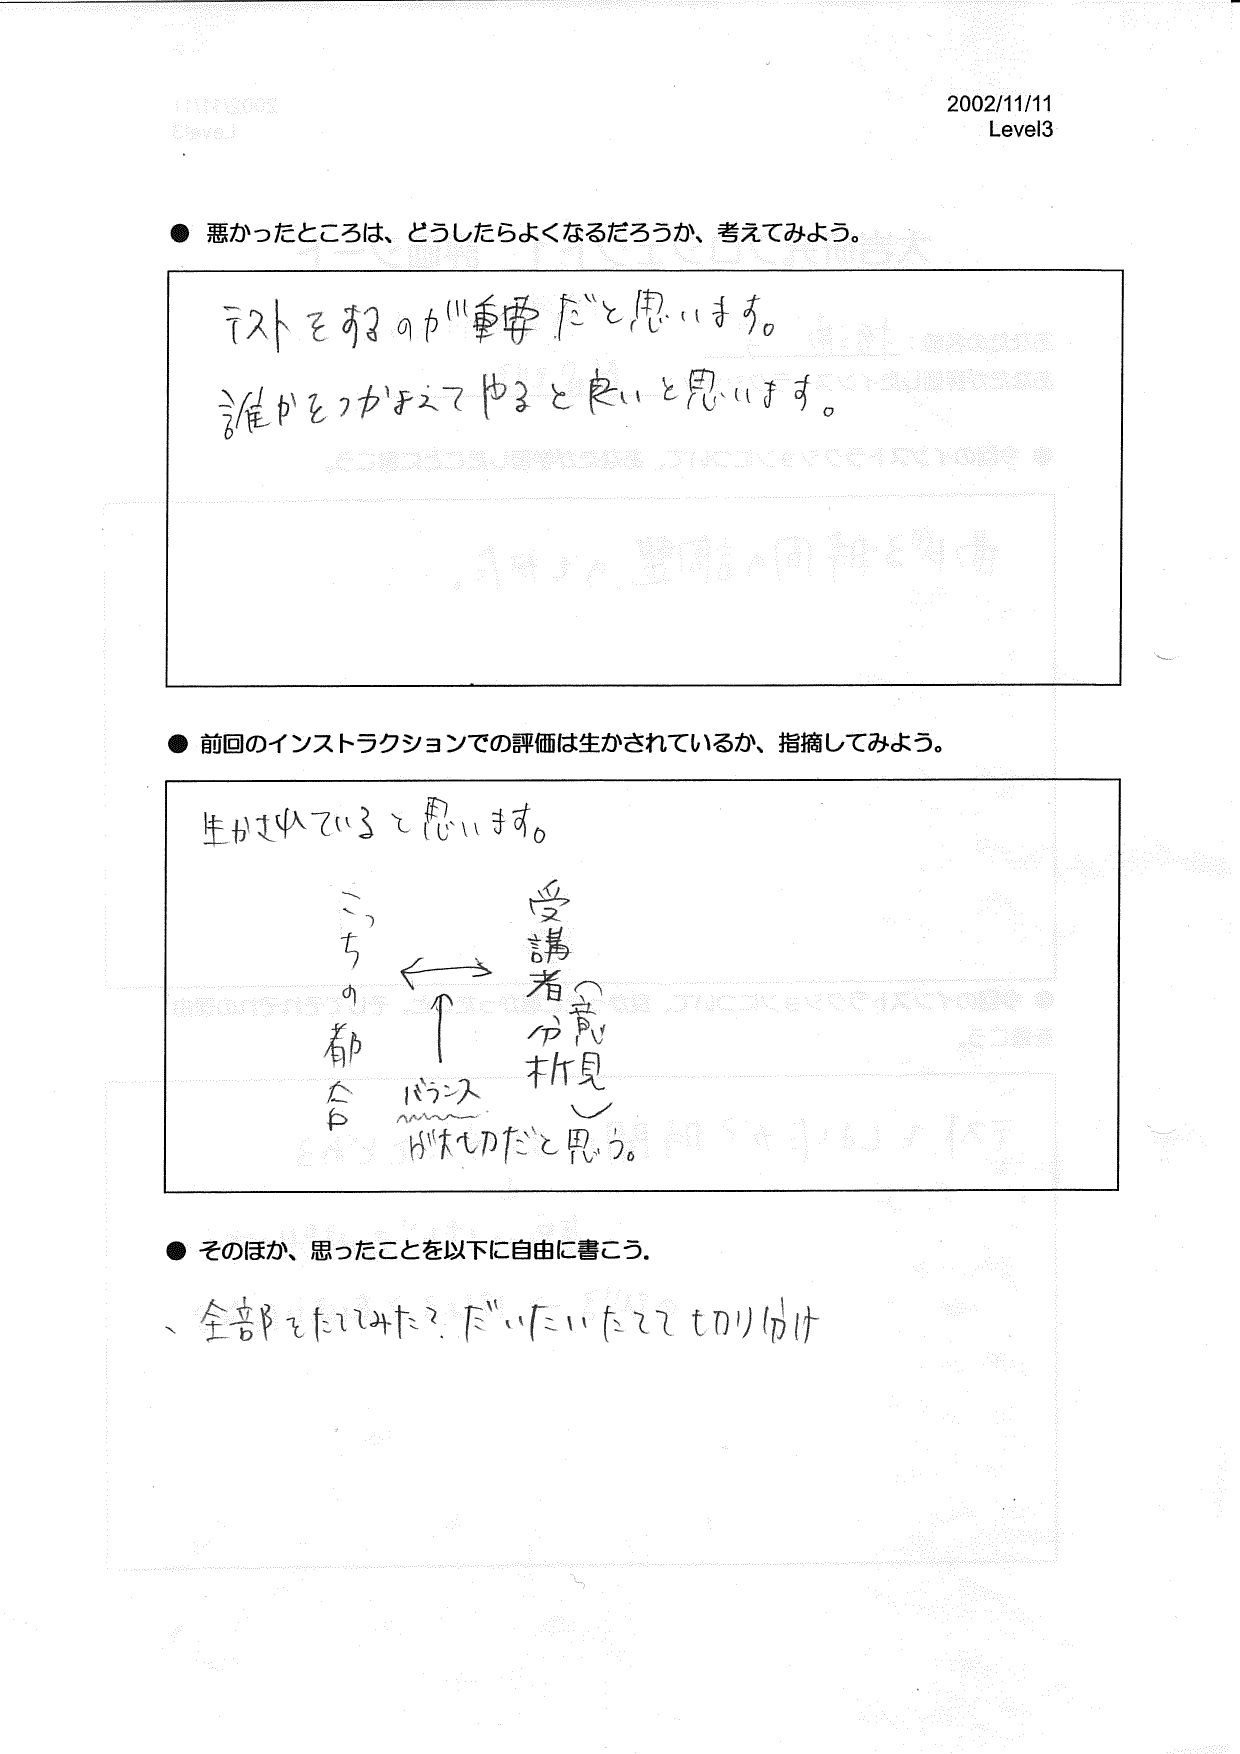 2002/11/11
Level3
● 悪かったところは、どうしたらよくなるだろうか、考えてみよう。
テストをするのが重要だと思います。
誰かをつかまえてやると良いと思います。
● 前回のインストラクションでの評価は生かされているか、指摘してみよう。
生かされていると思います。
こっちの都合
受講者分析
(意見)
バランス
が大切だと思う。
● そのほか、思ったことを以下に自由に書こう.
、全部をたててみた?だいたいたてて切り分け